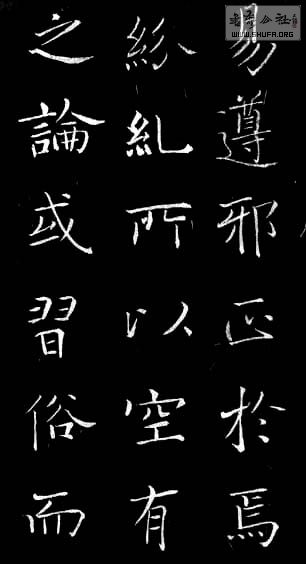 易遵邪正於焉
紛糺所以空有
之論或習俗而
書法公社
WWW.SHUFA.ORG